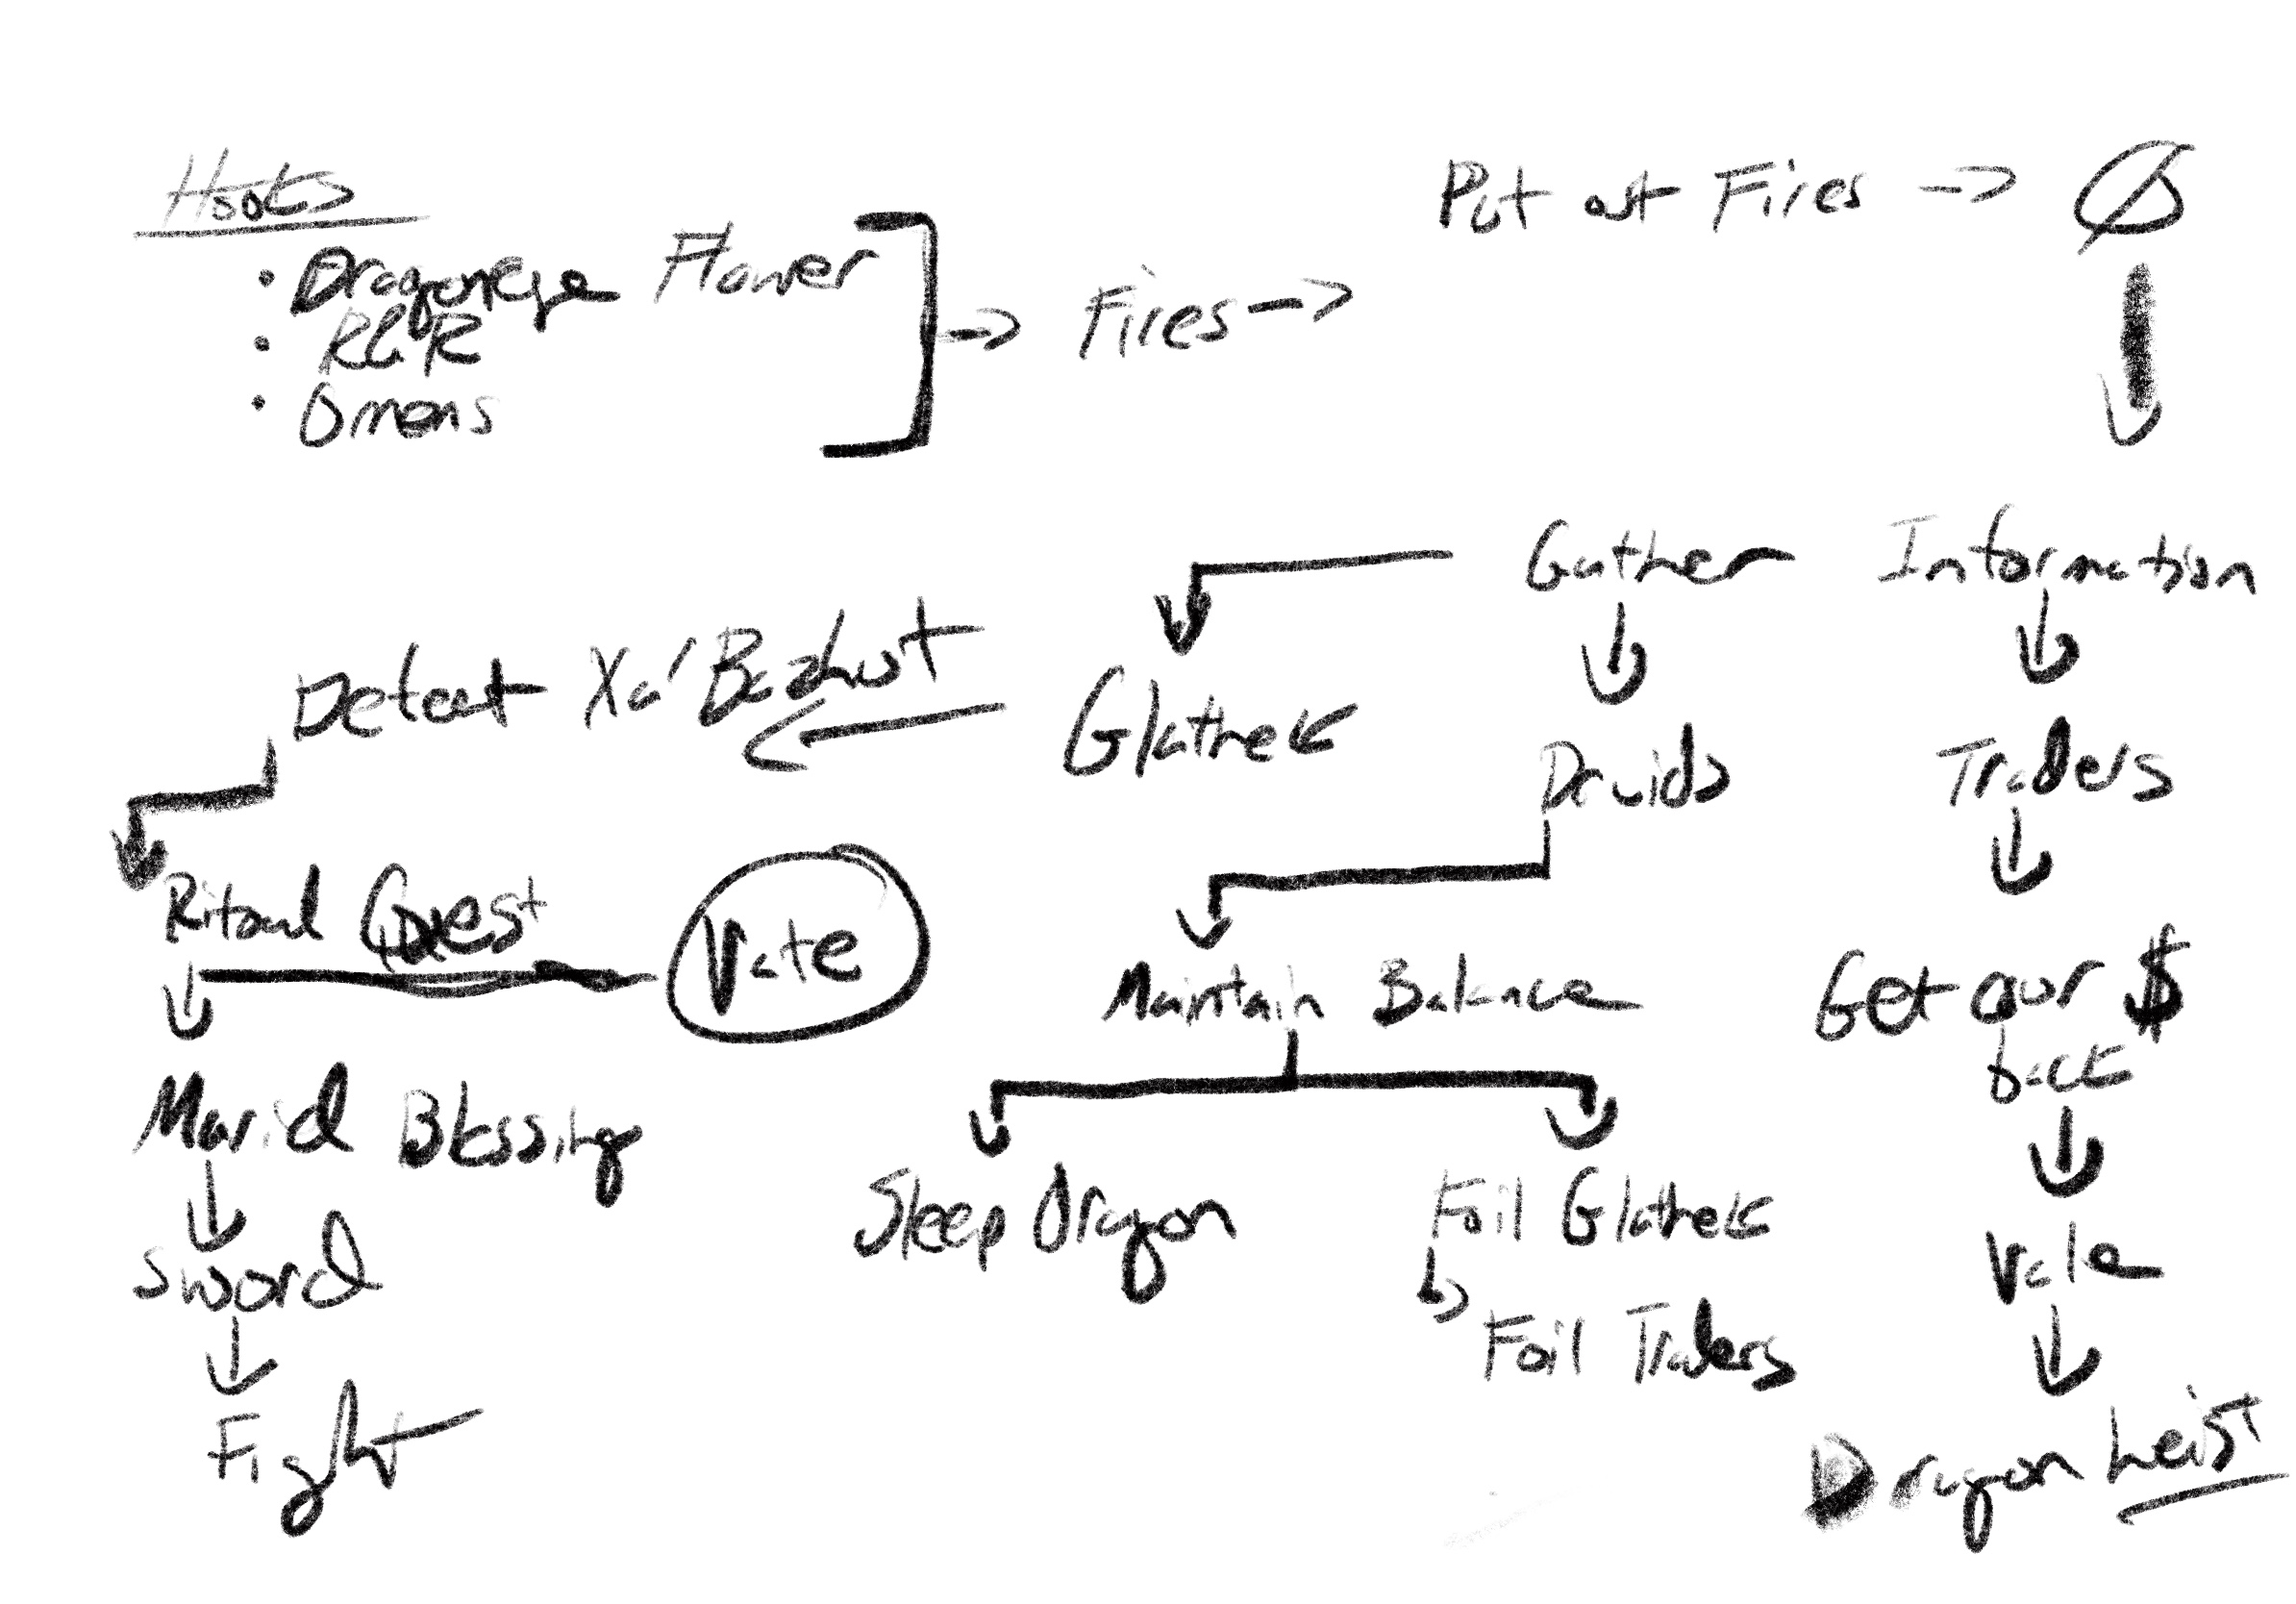 Hooks
• Dragoneye Flower
• RGR
• Omens
-> Fires ->
Put out Fires -> Ø
Gather Information
Glathek
Druids
Traders
Defeat Xa'Bazhut
Ritual Quest
Vate
Marid Blessing
Sword
Fight
Maintain Balance
Sleep Dragon
Foil Glathek
Foil Traders
Get our $
back
Vale
Dragon heist